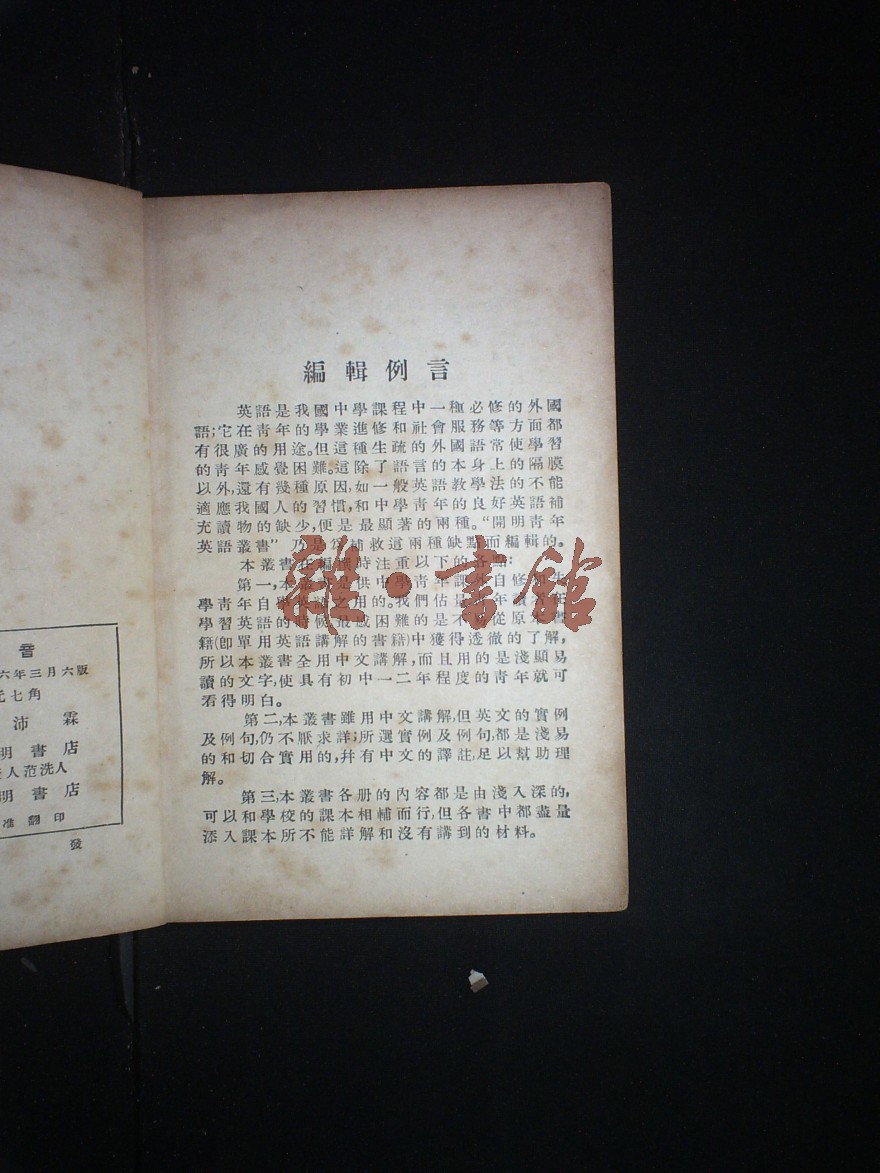 編輯例言
英語是我國中學課程中一種必修的外國
語;它在靑年的學業進修和社會服務等方面都
有很廣的用途。但這種生疏的外國語常使學習
的靑年感覺困難。這除了語言的本身上的隔膜
以外,還有幾種原因,如一般英語教學法的不能
適應我國人的習慣,和中學靑年的良好英語補
充讀物的缺少,便是最顯著的兩種。“開明靑年
英語叢書”乃是補救這兩種缺點而編輯的。
本叢書在編時注重以下的各點:
第一,本是供中學靑年課外自修
學靑年自學英語之用的。我們估量
學習英語的時候最感困難的是不易從原本書
籍(卽單用英語講解的書籍)中獲得透徹的了解,
所以本叢書全用中文講解,而且用的是淺顯易
讀的文字,使具有初中一二年程度的靑年就可
看得明白。
第二,本叢書雖用中文講解,但英文的實例
及例句,仍不厭求詳;所選實例及例句,都是淺易
的和切合實用的,幷有中文的譯註,足以幫助理
解。
第三,本叢書各册的內容都是由淺入深的,
可以和學校的課本相輔而行,但各書中都盡量
添入課本所不能詳解和沒有講到的材料。
雜·書館
六年三月六版
元七角
沛霖
明書店
人范洗人
明書店
准翻印
發